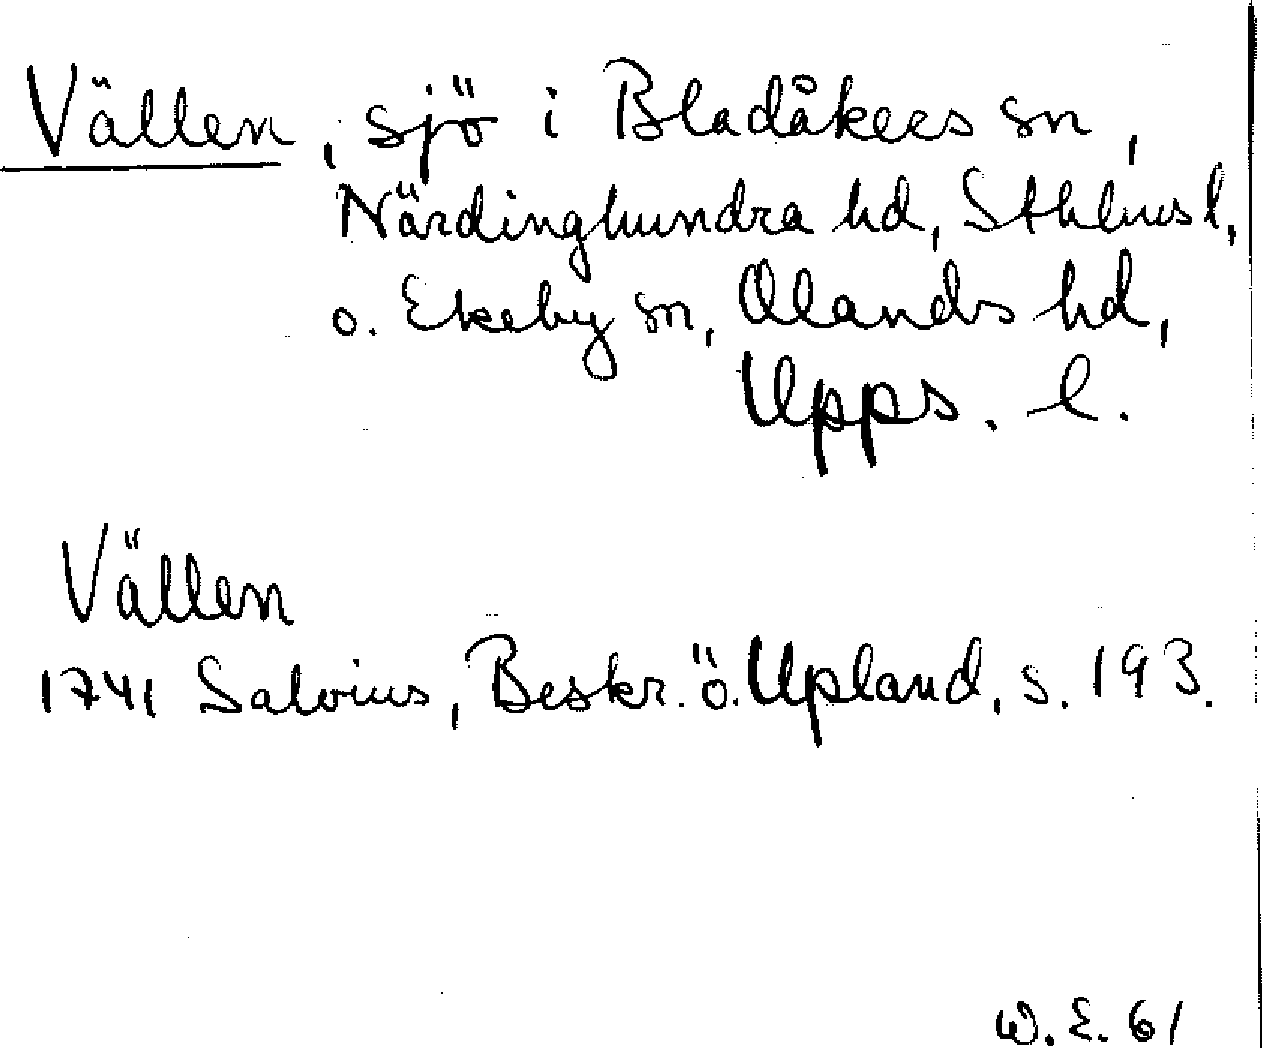 Vällen, sjö i Bladåkers sn,
Närdinghundra hd, Sthlms l,
o. Ekeby sn, Olands hd,
Upps. l.
Vällen
1741 Salvius, Beskr. ö. Upland, s. 193.
W. E. 61